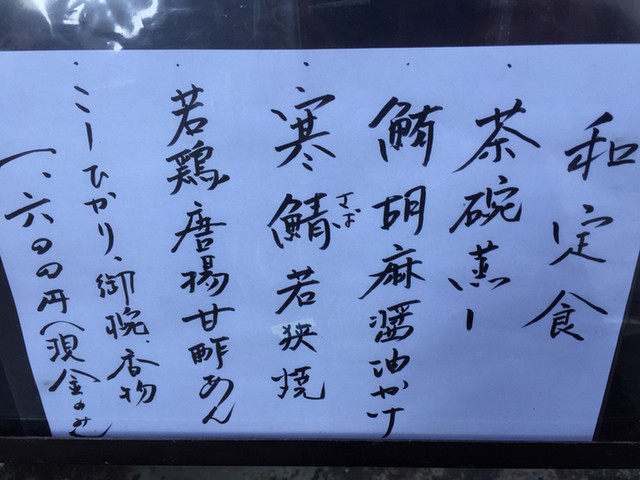 和定食
・茶碗蒸し
・鮪胡麻醤油かけ
・寒鯖若狭焼
さば
・若鶏唐揚甘酢あん
・こしひかり、御椀、香物
一、六〇〇円(現金のみ)